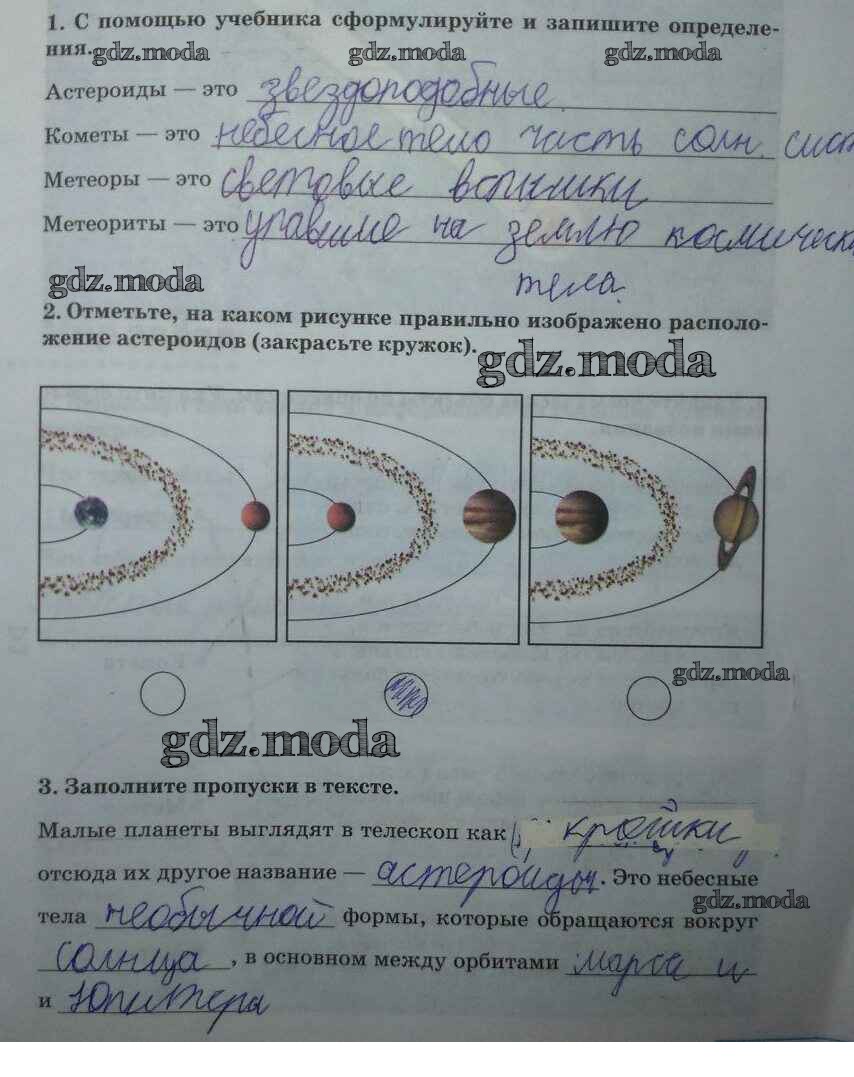 1. С помощью учебника сформулируйте и запишите определе-
ния. gdz.moda gdz.moda gdz.moda
Астероиды — это звездоподобные
Кометы — это небесное тело часть солн. сист
Метеоры — это световые вспышки
Метеориты — это упавшие на землю космическ
gdz.moda тела.
2. Отметьте, на каком рисунке правильно изображено располо-
жение астероидов (закрасьте кружок).
gdz.moda
gdz.moda
gdz.moda
3. Заполните пропуски в тексте.
Малые планеты выглядят в телескоп как крошки
отсюда их другое название — астероиды. Это небесные
gdz.moda
тела необычной формы, которые обращаются вокруг
солнца, в основном между орбитами марса и
и Юпитера